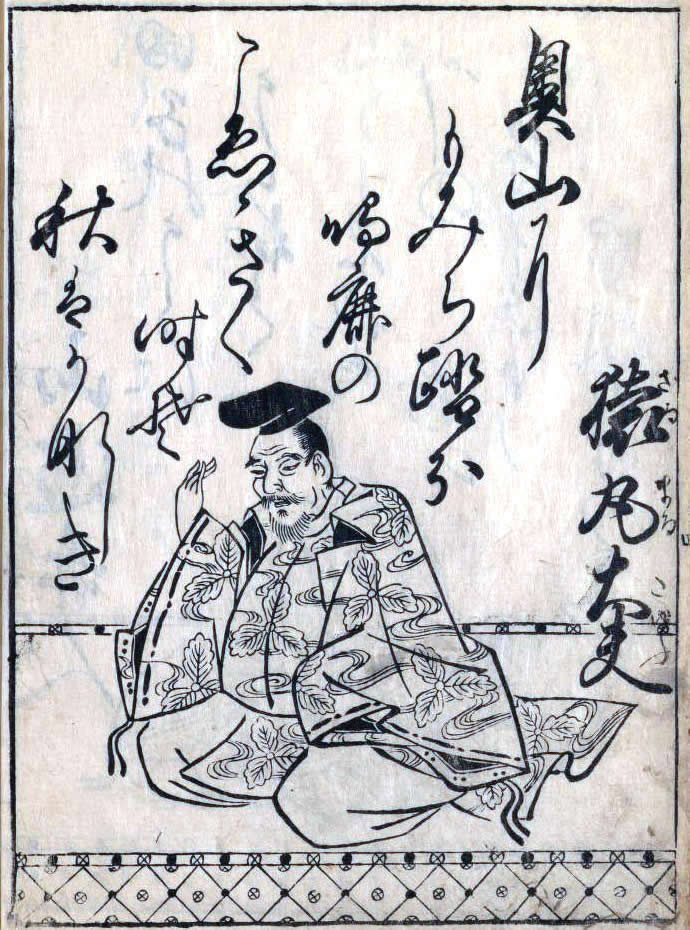 猿丸大夫
さる まる
奥山に
もみち踏分
鳴鹿の
こゑきく
時そ
秋はかなしき